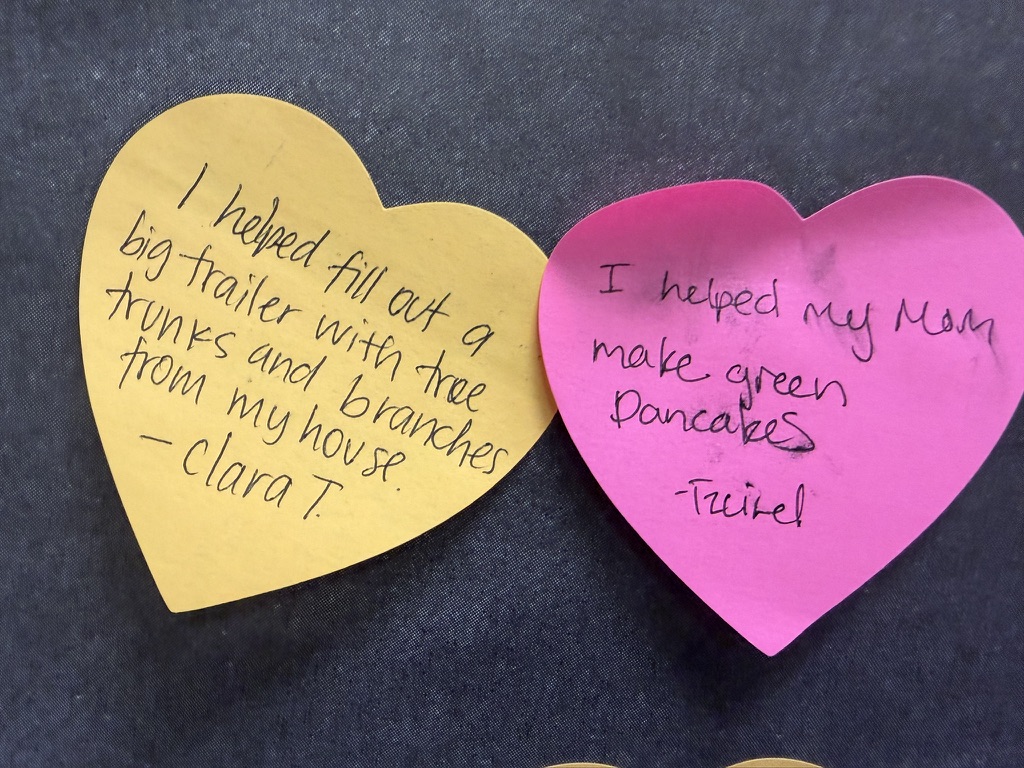 I helped fill out a
big trailer with tree
trunks and branches
from my house.
- Clara T.
I helped my Mom
make green
Pancakes